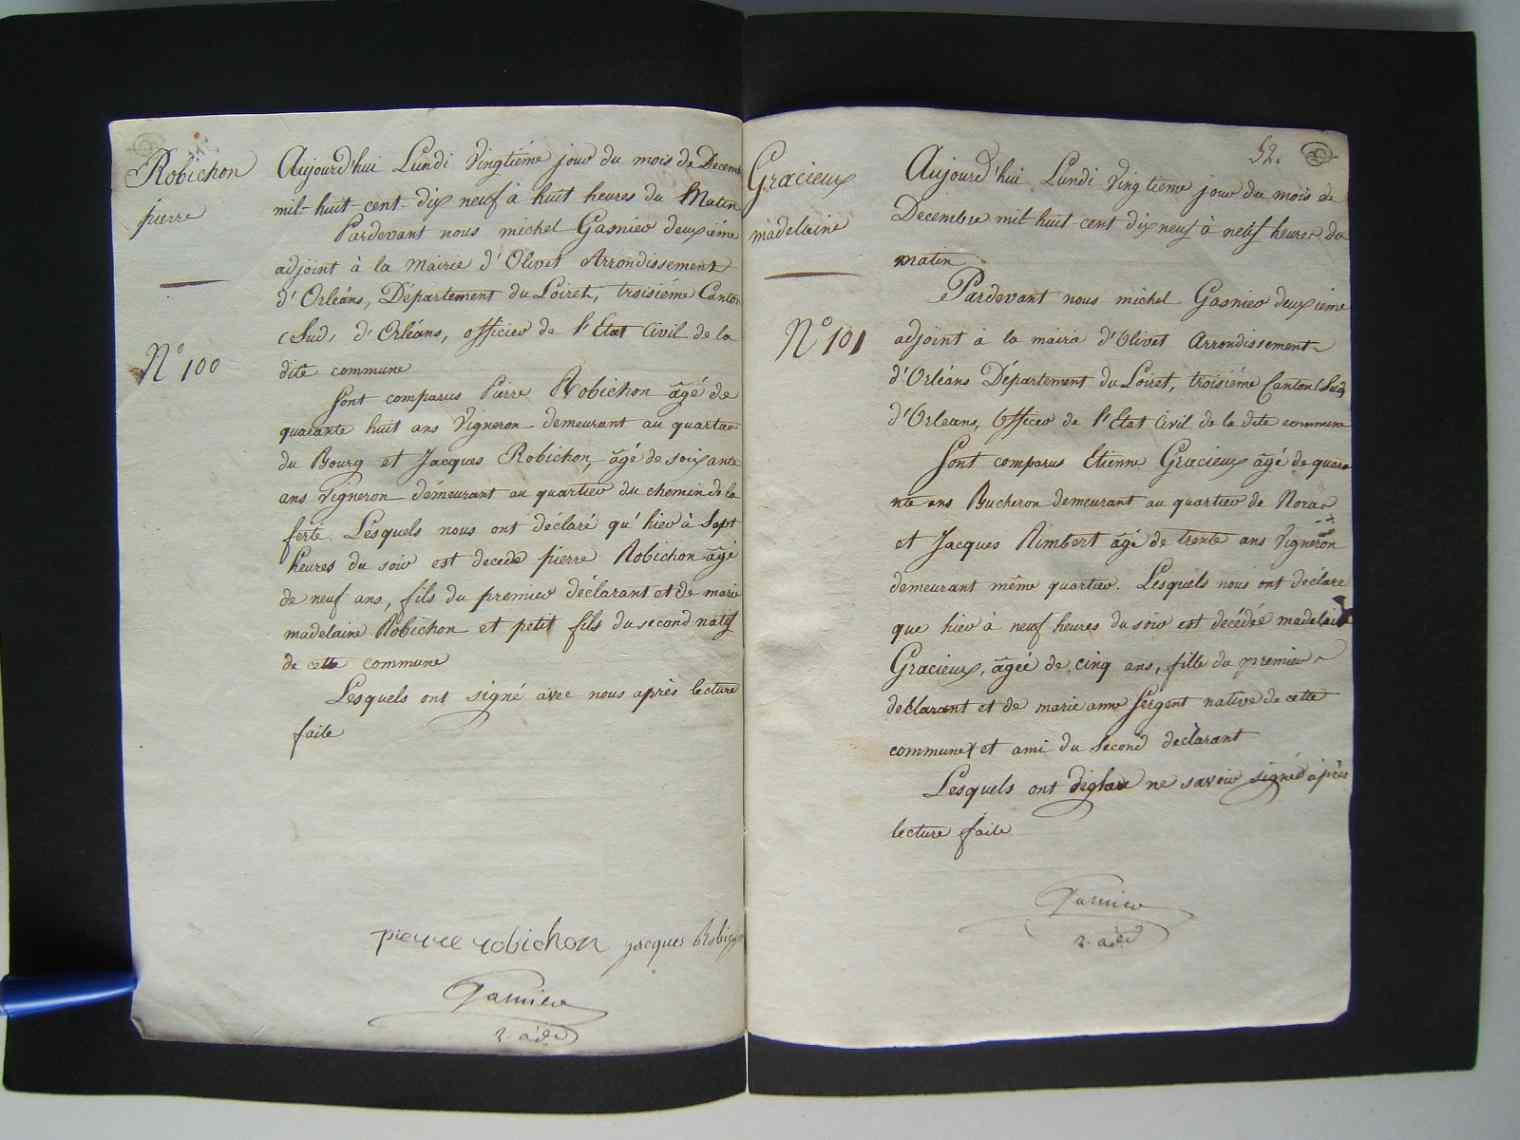 Robichon
pierre
N° 100
Aujourd'hui Lundi vingtiéme jour du mois de Decem
mil-huit-cent-dix neuf à huit heures du Matin
Pardevant nous michel Gasnier deuxiéme
adjoint à la Mairie d'Olivet Arrondissement
d'Orléans, Département du Loiret, troisiéme Canton
(Sud, d'Orléans, officier de l'Etat Civil de la
dite commune
Sont comparus Pierre Robichon âgé de
quarante huit ans Vigneron demeurant au quartier
du Bourg et Jacques Robichon, âgé de soixante
ans Vigneron demeurant au quartier du chemin de la
ferté. Lesquels nous ont déclaré qu'hier à Sept
heures du soir est decede pierre Robichon âgé
de neuf ans, fils du premier déclarant et de marie
madelaine Robichon et petit fils du second natif
de cette commune
Lesquels ont signé avec nous après lecture
faite
pierre robichon jacques Robich
Gasnier
2. adj
52.
Gracieux
madelaine
N° 101
Aujourd'hui Lundi vingtiéme jour du mois de
Decembre mil huit cent dix neuf à neuf heures du
matin
Pardevant nous michel Gasnier deuxiéme
adjoint à la mairie d'Olivet Arrondissement
d'Orléans Département du Loiret, troisiéme Canton (Sud
d'Orleans, Officier de l'Etat Civil de la dite commune
Sont comparus Etienne Gracieux âgé de quara
nte ans Bucheron demeurant au quartier de
et Jacques Rimbert âgé de trente ans Vigneron
demeurant même quartier. Lesquels nous ont déclaré
que hier à neuf heures du soir est décédée madelaine
Gracieux, âgée de cinq ans, fille du premier
declarant et de marie anne Sergent native de cette
commune et ami du Second declarant
Lesquels ont déglaré ne savoir signé après
lecture faite
Gasnier
2. adj